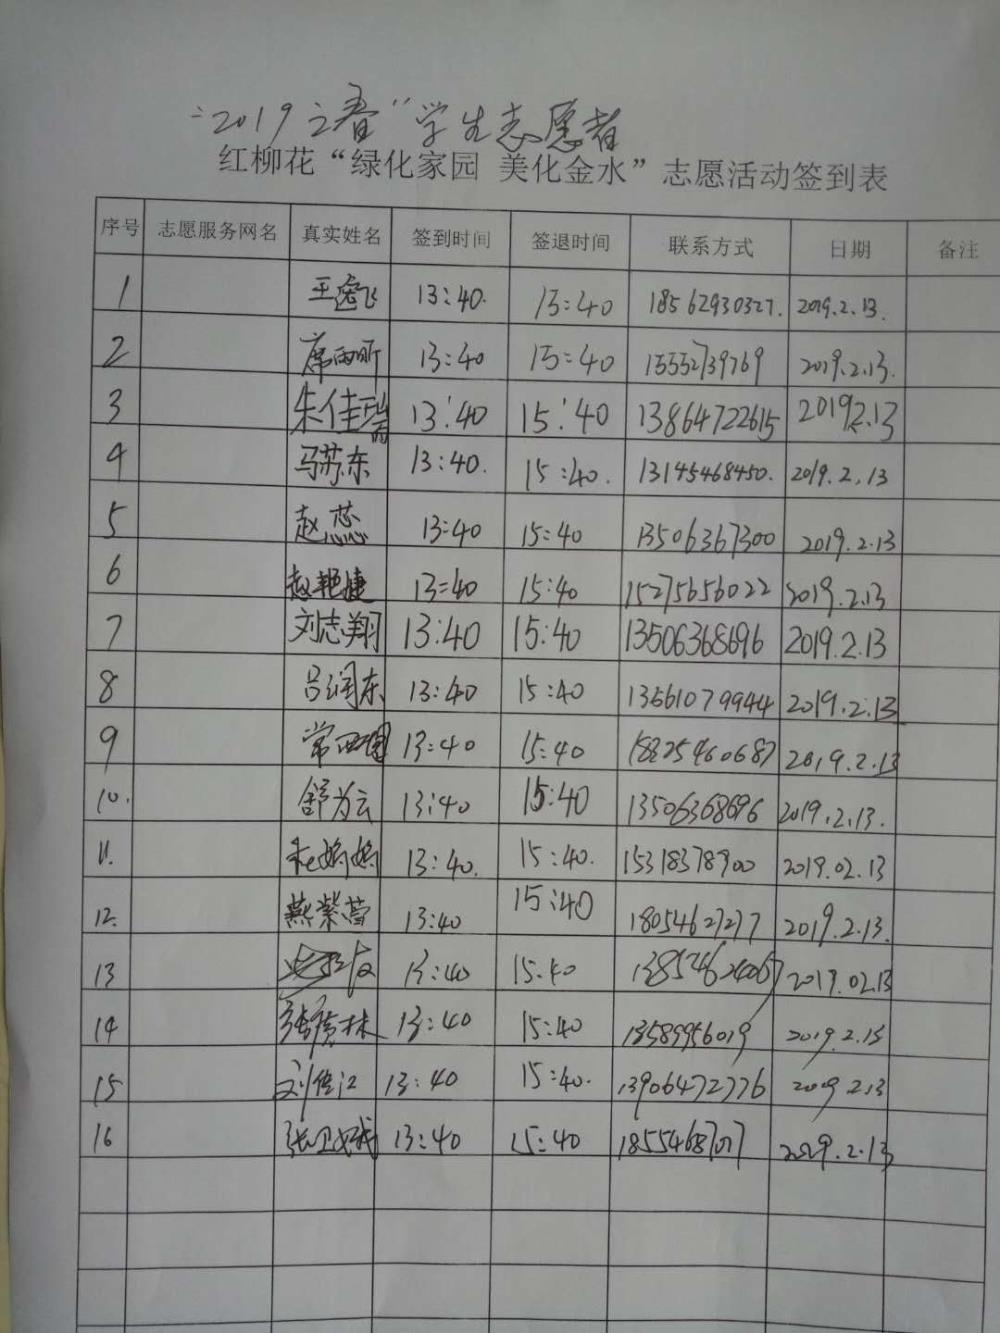 "2019之春"学生志愿者
红柳花“绿化家园 美化金水”志愿活动签到表
序号 志愿服务网名 真实姓名 签到时间 签退时间 联系方式 日期 备注
1 王逸飞 13:40. 15:40 18562930327. 2019.2.13.
2 席雨昕 13:40 15:40 15552739769 2019.2.13.
3 朱佳瑞 13:40 15:40 13864722615 2019.2.13
4 马苏东 13:40. 15:40. 13145468450. 2019.2.13
5 赵蕊 13:40 15:40 13506367300 2019.2.13
6 赵艳婕 13:40 15:40 15275656022 2019.2.13
7 刘志翔 13:40 15:40 13506368696 2019.2.13
8 吕润东 13:40 15:40 13561079944 2019.2.13
9 常 13:40 15:40 18825460687 2019.2.13
10. 舒为云 13:40 15:40 13506368696 2019.2.13.
11. 杜娟娟 13:40. 15:40. 15318378900 2019.02.13
12. 燕紫萱 13:40 15:40 18054627277 2019.2.13.
13 13:40 15:40 2019.02.13
14 张德林 13:40 15:40 13589956019 2019.2.13
15 刘传江 13:40 15:40. 13906472776 2019.2.13
16 张卫 13:40 15:40 18554687017 2019.2.13